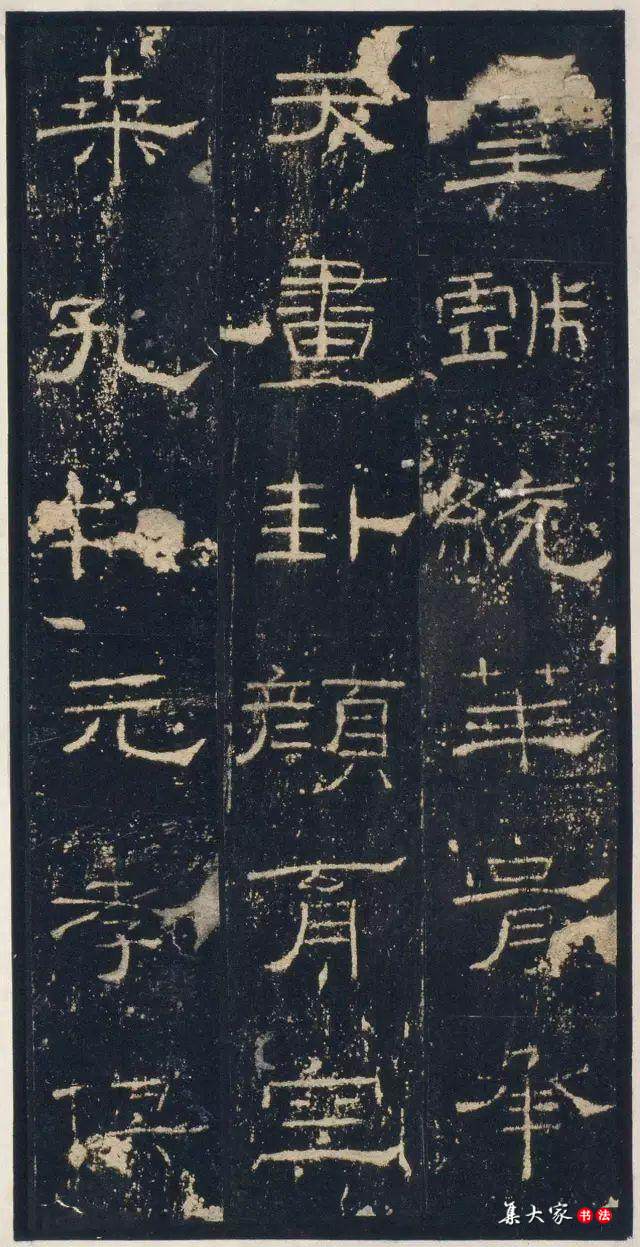 皇戲統華胥承
天畫卦顏育空
桒孔制元孝俱
集大家书法